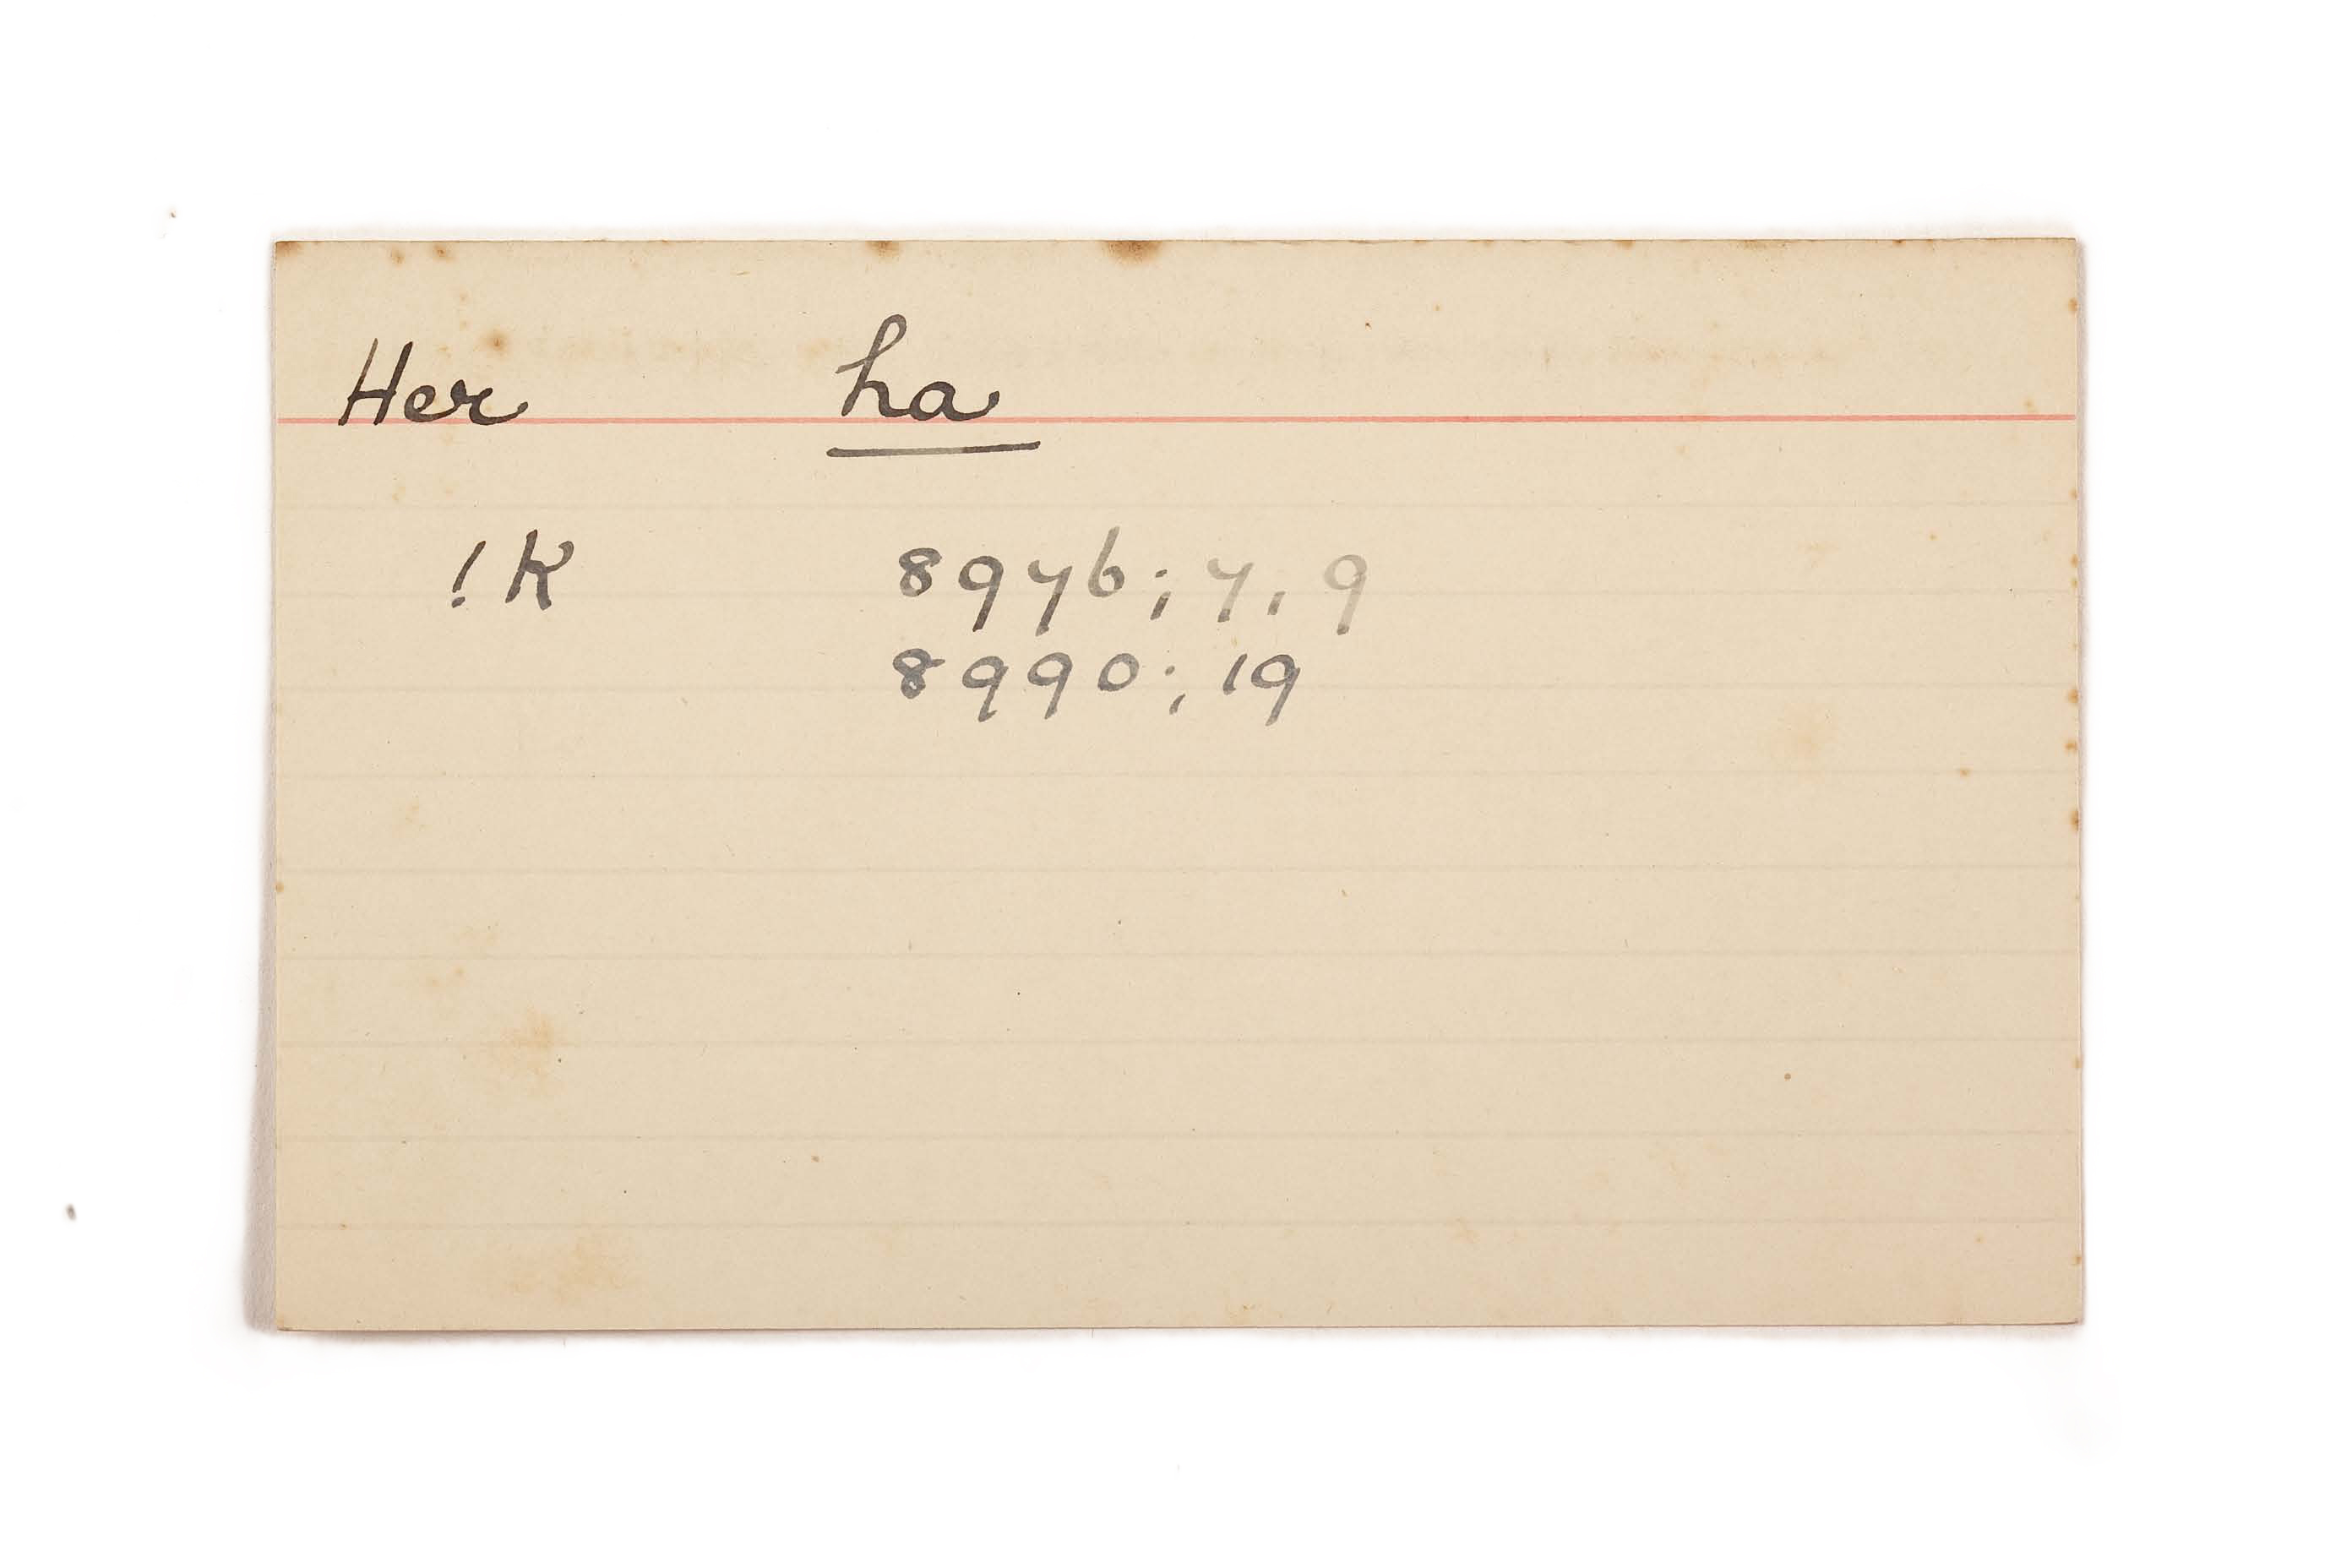 Her ha
!K 8976; 7, 9
8990; 19